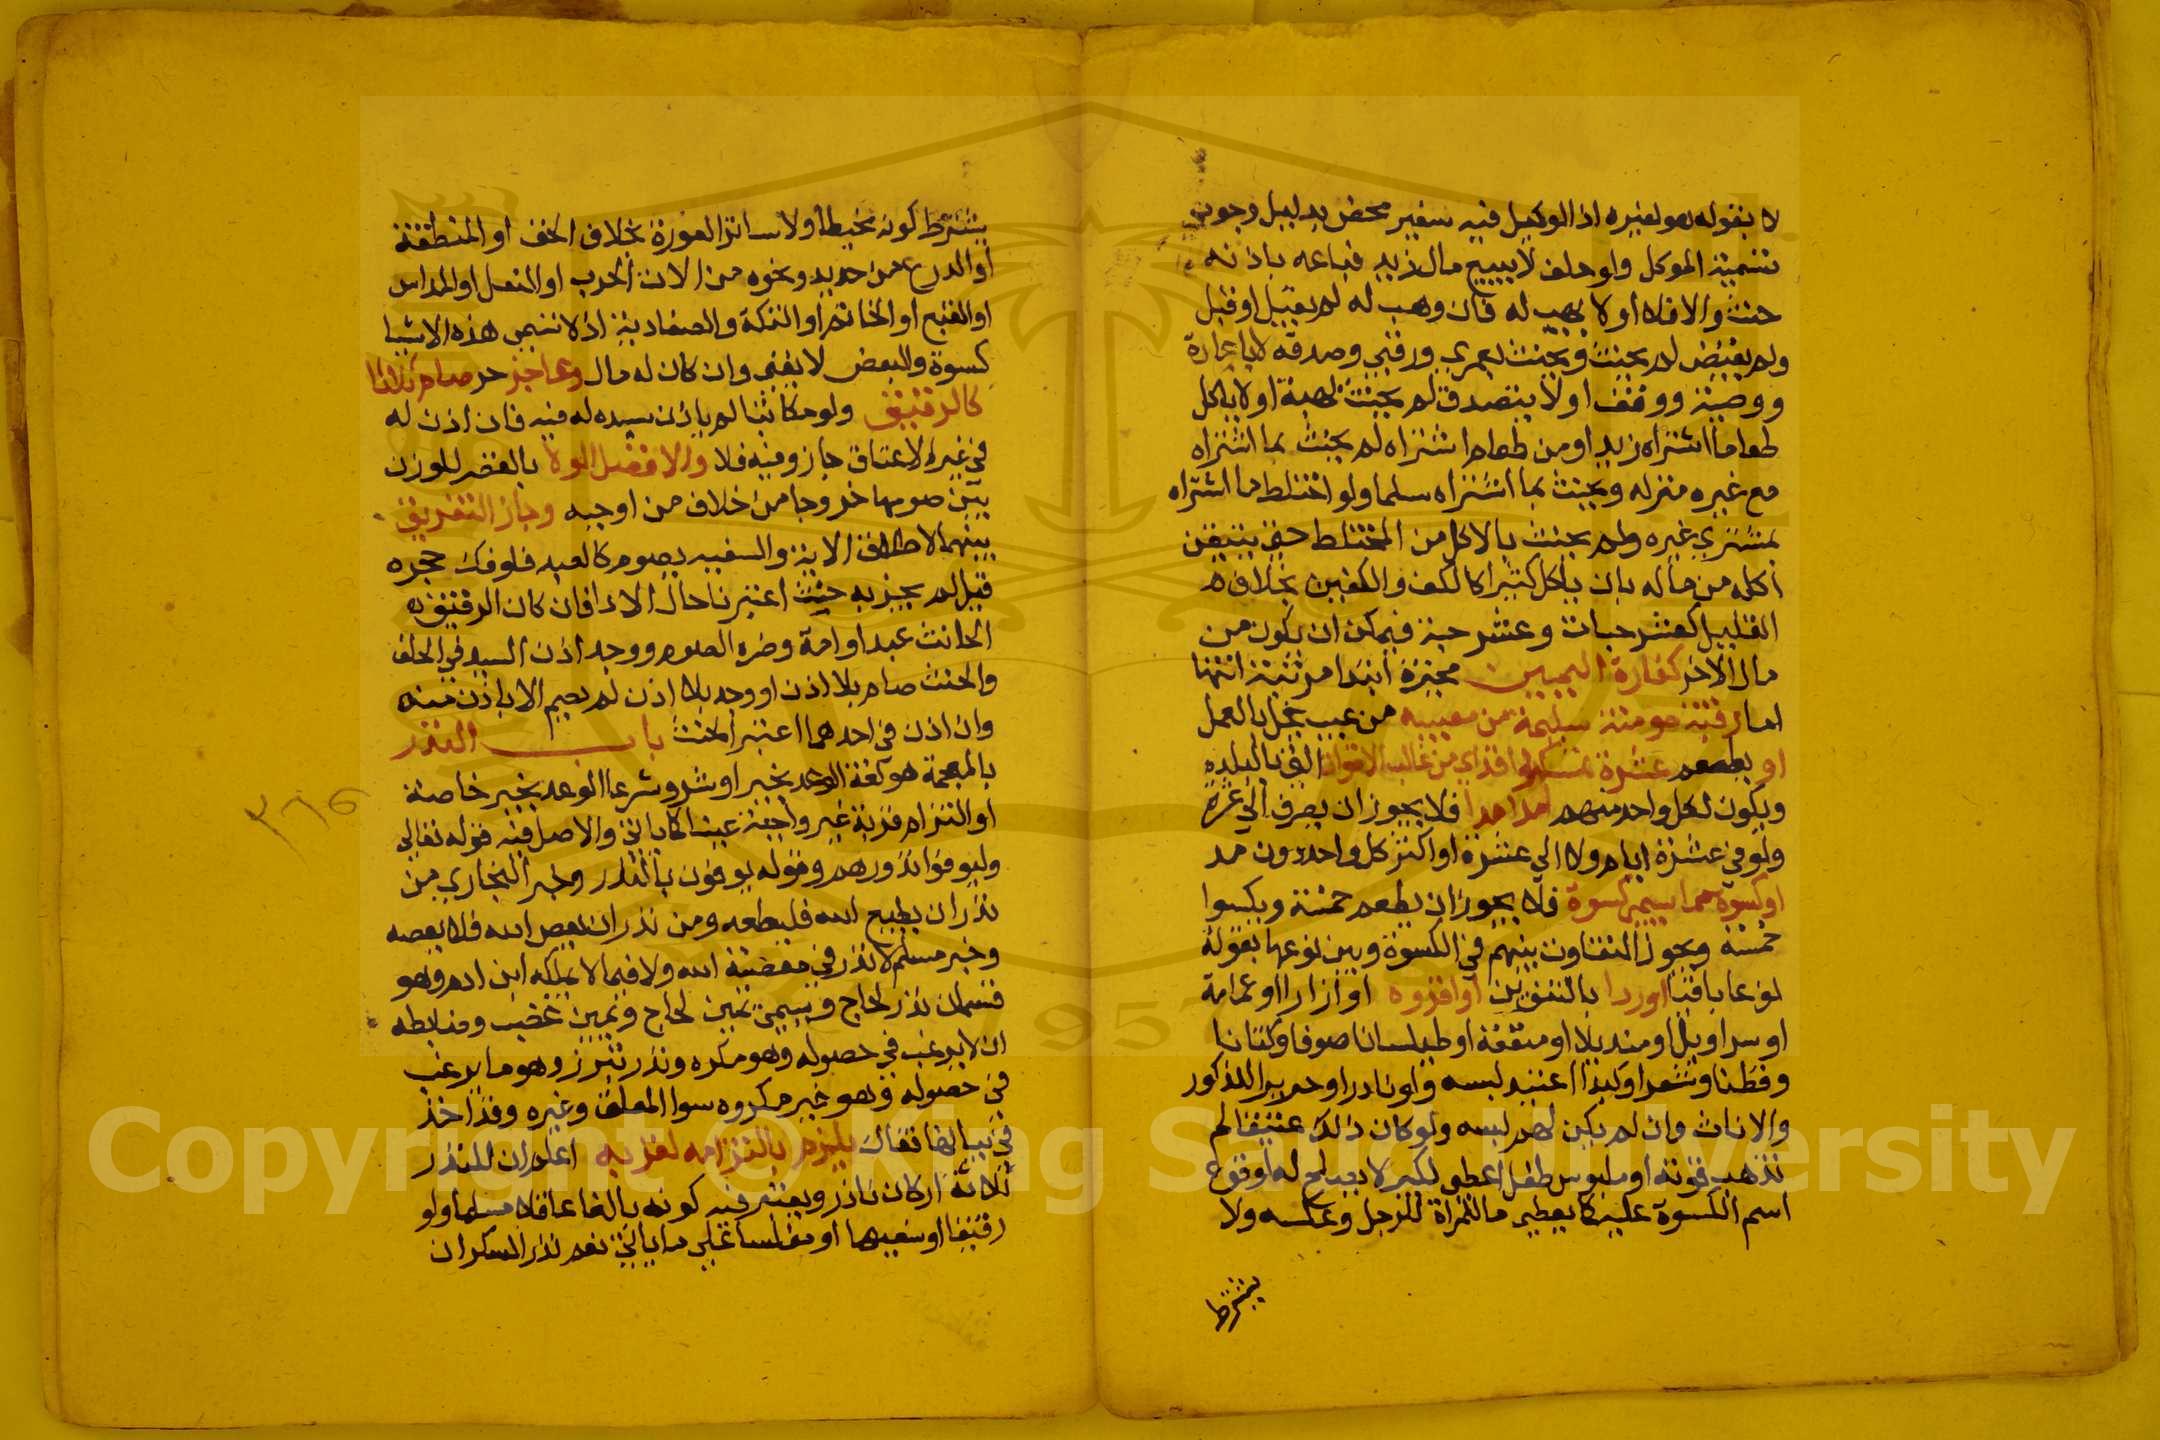 لا بقوله هو لغيره اذ الوكيل فيه سفير محض بدليل وجوب
تسمية الموكل ولو حلف لا يبيع مال زيد فباعه باذنه
حنث والا فلا او لا يهب له فان وهب له لم يقبل او قبل
ولم يقبض لم يحنث ويحنث بعمري ورقبي وصدقه لا باعارة
ووصية ووقف او لا يتصدق لم يحنث بهبة او لا ياكل
طعاما اشتراه زيد او من طعام اشتراه لم يحنث بما اشتراه
مع غيره منزله ويحنث بما اشتراه سلما ولو اختلط ما اشتراه
بمشتري غيره ولم يحنث بالاكل من المختلط حتي يتيقن
اكله من ماله بان ياكل كثيرا كالكف والكفين بخلاف
القليل كعشر حبات وعشر حبة فيمكن ان يكون من
مال الاخر كفارة اليمين مخيرة ابتدا مرتبة انتها
اما رقبة مومنة سليمة من معيبه من عيب يخل بالعمل
او يطعم عشرة تمسكنوا قد اي من غالب الاقوات التي بالبلده
ويكون لكل واحد منهم مدا مدا فلا يجوز ان يصرف الي غيره
ولو في عشرة ايام ولا الي عشرة او اكثر كل واحد دون مد
او كسوة بما يسمي كسوة فلا يجوز ان يطعم خمسة ويكسوا
خمسة ويجوز التفاوت بينهم في الكسوة وبين نوعها بقوله
لوعا باقيا او ردا بالتنوين او افروه او ازارا او عمامة
او سراويل او منديلا او مقنعة او طيلسانا صوفا وكتانا
وقطنا وشعرا ولبدا اعتيد لبسه ولو نادرا وحريرا للذكور
والاناث وان لم يكن لهم لبسه ولو كان ذلك عتيقا لم
تذهب قوته او ملبوس طفل اعطي لكبير لا يصلح له لوقوع
اسم الكسوة عليه كما يعطي ما للمراة للرجل وعكسه ولا
يشترط
يشترط كونه مخيطا ولا ساتر العورة بخلاف الخف او المنطقة
او الدرع من حديد ونحوه من الات الحرب او النعل او المداس
او القبع او الخاتم او التكة والصفادية اذ لا تسمي هذه الاشيا
كسوة والبعض لا يغني وان كان له مال وعاجز حر صام ثلاثا
كالرقيق ولو مكاتبا لم ياذن سيده له فيه فان اذن له
في غير الاعتاق جاز وفيه فلا والافضل الولا بالقصر للوزن
بين صومها خروجا من خلاف من اوجبه وجاز التفريق
بينهما لاطلاق الاية والسفيه يصوم كالعبد فلو فك حجره
قبل لم يجز به حيث اعتبرنا حال الادا فان كان الرقيق
الحانث عبدا او امة وضره الصوم ووجد اذن السيد في الحلف
والحنث صام بلا اذن او وجد بلا اذن لم يصم الا باذن منه
وان اذن في احدهما اعتبر الحنث باب النذر
بالمعجمة هو لغة الوعد بخير او شر وشرعا الوعد بخير خاصة
او التزام قربة غير واجبة عينا كما ياتي والاصل فيه قوله تعالي
وليوفوا نذورهم وقوله يوفون بالنذر وخبر البخاري من
نذر ان يطيع الله فليطعه ومن نذر ان يعصي الله فلا يعصه
وخبر مسلم لا نذر في معصية الله ولا فيما لا يملكه ابن ادم وهو
قسمان نذر لجاج ويسمي يمين لجاج ويمين غضب وضابطه
ان لا يرغب في حصوله وهو مكره ونذر تبرر وهو ما يرغب
في حصوله وهو غير مكروه سوا المعلق وغيره وقد اخذ
في بيانها فقال يلزم بالتزامه لقربه اعلم ان للنذر
ثلاثة اركان ناذر ويعتبر فيه كونه بالغا عاقلا مسلما ولو
رقيقا او سفيها او مفلسا علي ما ياتي نعم نذر السكران
Copyright © King Saud University
1957